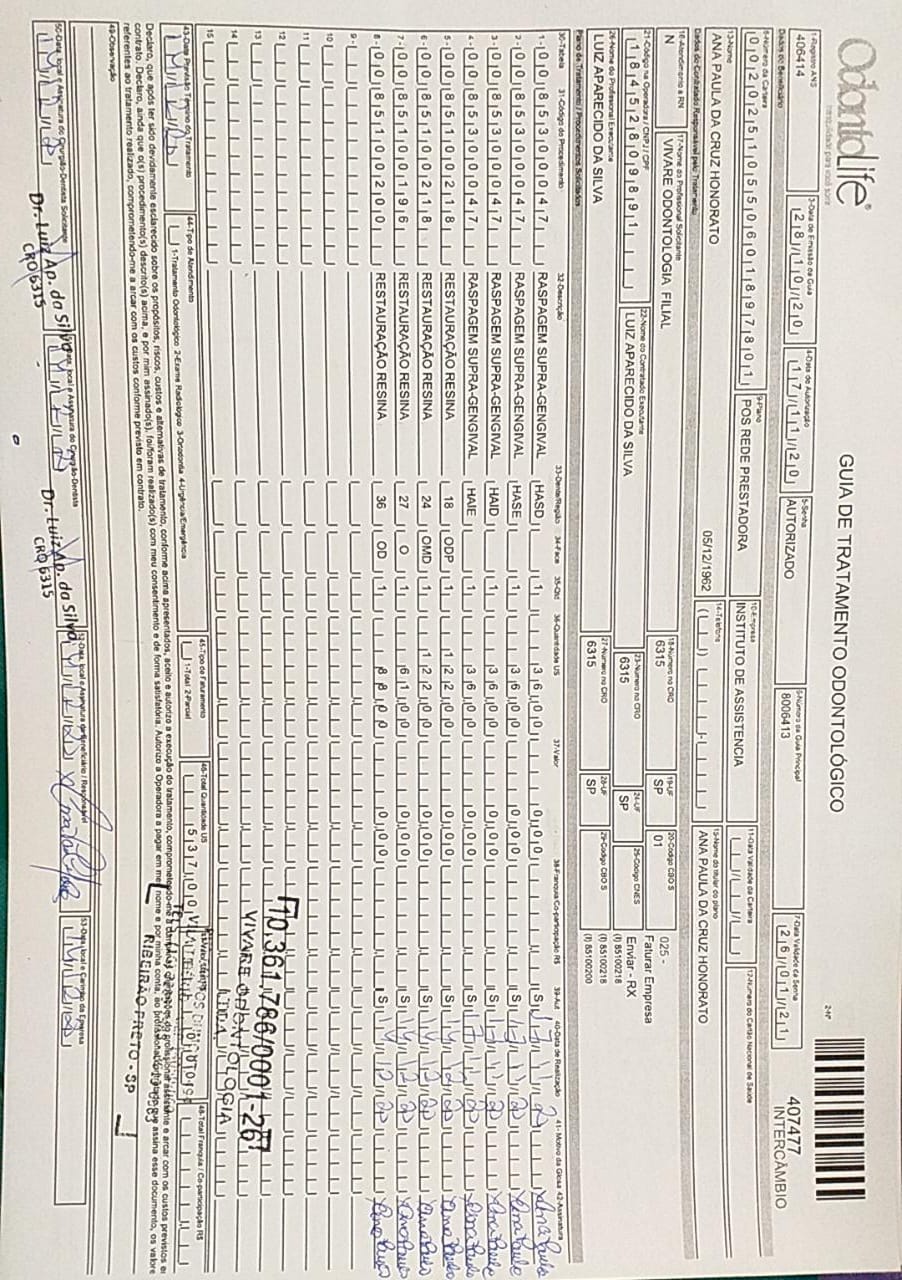 OdontoLife®
GUIA DE TRATAMENTO ODONTOLÓGICO
2-Nº
407477
INTERCÂMBIO
1-Registro ANS
406414
3-Data de Emissão da Guia
28/10/20
4-Data de Autorização
17/11/20
5-Senha
AUTORIZADO
6-Número da Guia Principal
8006413
7-Data Validade da Senha
26/01/21
Dados do Beneficiário
8-Número da Carteira
00202510550601897801
9-Plano
POS REDE PRESTADORA
10-Empresa
INSTITUTO DE ASSISTENCIA
11-Data Validade da Carteira
12-Número do Cartão Nacional de Saúde
13-Nome
ANA PAULA DA CRUZ HONORATO
05/12/1962
14-Telefone
15-Nome do titular do plano
ANA PAULA DA CRUZ HONORATO
Dados do Contratado Responsável pelo Tratamento
16-Atendimento a RN
N
17-Nome do Profissional Solicitante
VIVARE ODONTOLOGIA FILIAL
18-Número no CRO
6315
19-UF
SP
20-Código CBO S
01
025 -
Faturar Empresa
21-Código na Operadora / CNPJ / CPF
18452809891
22-Nome do Contratado Executante
LUIZ APARECIDO DA SILVA
23-Número no CRO
6315
24-UF
SP
25-Código CNES
Enviar - RX
(I) 85100218
(I) 85100218
(I) 85100200
26-Nome do Profissional Executante
LUIZ APARECIDO DA SILVA
27-Número no CRO
6315
28-UF
SP
29-Código CBO S
Plano de Tratamento / Procedimentos Solicitados
30-Tabela 31-Código do Procedimento 32-Descrição 33-Dente/Região 34-Face 35-Qtd 36-Quantidade US 37-Valor 38-Franquia/Co-participação R$ 39-Aut 40-Data de Realização 41-Motivo da Glosa 42-Assinatura
1- 00 85300047 RASPAGEM SUPRA-GENGIVAL HASD 1 36,00 0,00 S
2- 00 85300047 RASPAGEM SUPRA-GENGIVAL HASE 1 36,00 0,00 S
3- 00 85300047 RASPAGEM SUPRA-GENGIVAL HAID 1 36,00 0,00 S
4- 00 85300047 RASPAGEM SUPRA-GENGIVAL HAIE 1 36,00 0,00 S
5- 00 85100218 RESTAURAÇÃO RESINA 18 ODP 1 122,00 0,00 S
6- 00 85100218 RESTAURAÇÃO RESINA 24 OMD 1 122,00 0,00 S
7- 00 85100196 RESTAURAÇÃO RESINA 27 O 1 61,00 0,00 S
8- 00 85100200 RESTAURAÇÃO RESINA 36 OD 1 88,00 0,00 S
9-
10
11
12
13
14
15
70.361.786/0001-26
VIVARE ODONTOLOGIA
LTDA.
RIBEIRÃO PRETO - SP
43-Data Previsão Término do Tratamento
44-Tipo de Atendimento
1-Tratamento Odontológico 2-Exame Radiológico 3-Ortodontia 4-Urgência/Emergência
45-Tipo de Faturamento
1-Total 2-Parcial
46-Total Quantidade US
537,00
48-Total Franquia / Co-participação R$
Declaro, que após ter sido devidamente esclarecido sobre os propósitos, riscos, custos e alternativas de tratamento, conforme acima apresentados, aceito e autorizo a execução do tratamento, comprometendo-me a
contrato. Declaro, ainda que o(s) procedimento(s) descrito(s) acima, e por mim assinado(s), foi/foram realizado(s) com meu consentimento e de forma satisfatória. Autorizo a Operadora a pagar em meu nome e por minha conta, ao profissional contratado que assina esse documento, os valores
referentes ao tratamento realizado, comprometendo-me a arcar com os custos conforme previsto em contrato.
49-Observação
50-Data, local e Assinatura do Cirurgião-Dentista Solicitante
51-Data, local e Assinatura do Cirurgião-Dentista
52-Data, local e Assinatura do Beneficiário / Responsável
53-Data, local e Carimbo da Empresa
Dr. Luiz Ap. da Silva
CRO 6315
Dr. Luiz Ap. da Silva
CRO 6315